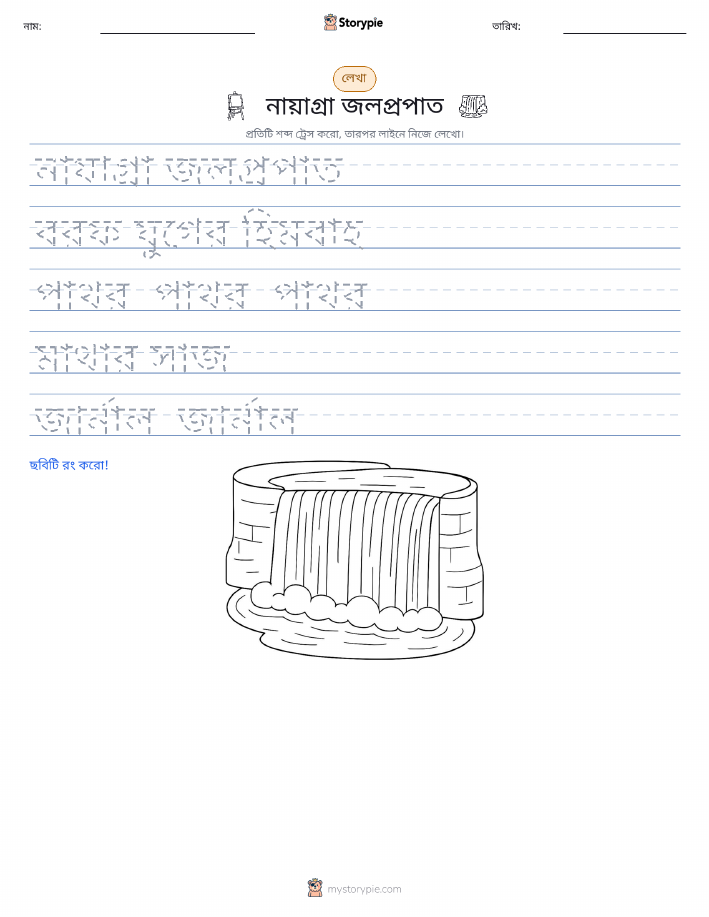 নাম:
Storypie
তারিখ:
লেখা
নায়াগ্রা জলপ্রপাত
প্রতিটি শব্দ ট্রেস করো, তারপর লাইনে নিজে লেখো।
নায়াগ্রা জলপ্রপাত
বরফ যুগের হিমবাহ
পাথর পাথর পাথর
মাথার সাজ
জার্নাল জার্নাল
ছবিটি রং করো!
mystorypie.com